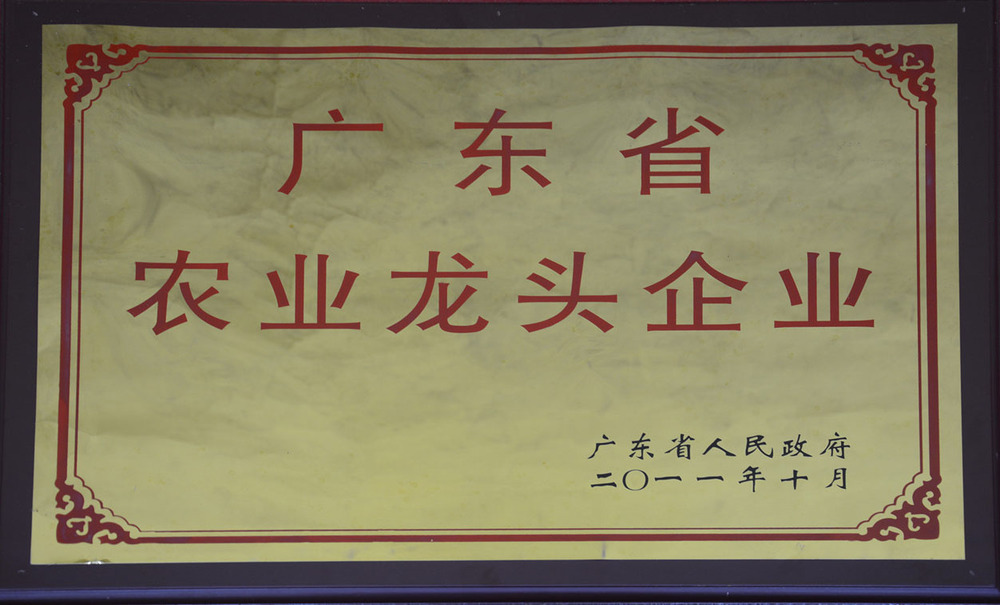 广东省
农业龙头企业
广东省人民政府
二〇一一年十月